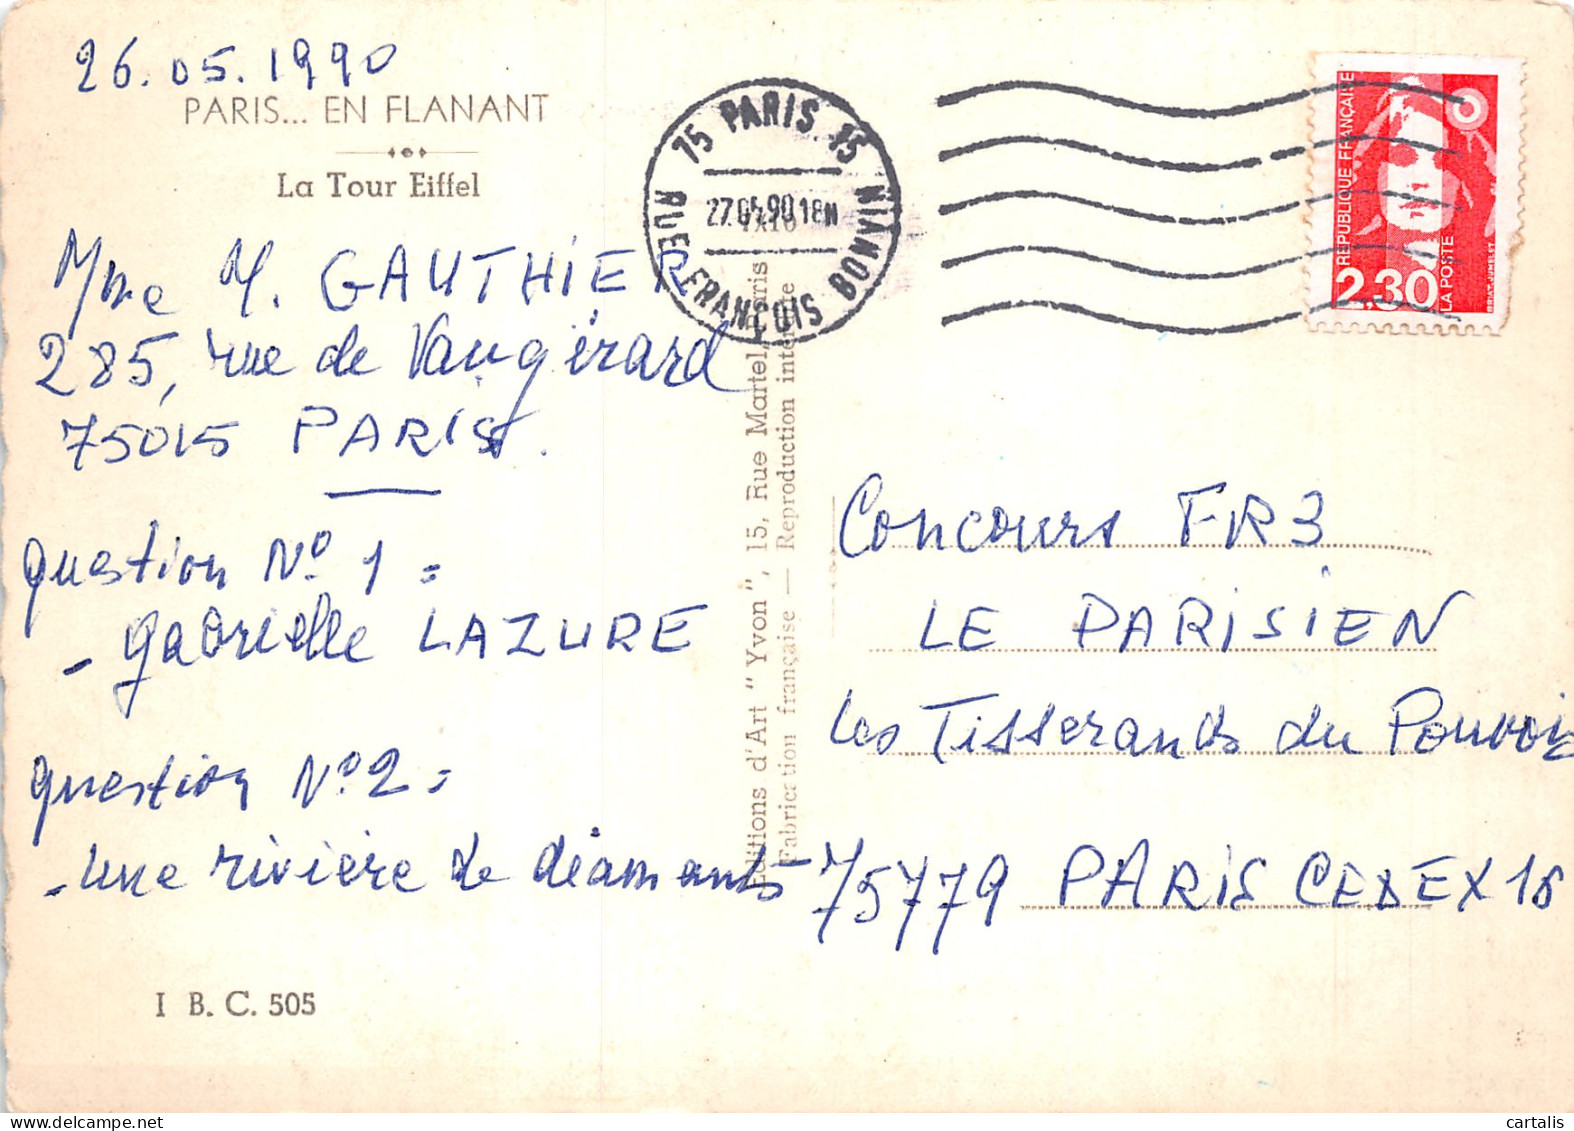 26.05.1990
PARIS... EN FLANANT
La Tour Eiffel
Mme Y. GAUTHIER
285, rue de Vaugirard
75015 PARIS.
Question N° 1 =
- Gabrielle LAZURE
Question N° 2 =
- une rivière de diamants
I B. C. 505
Editions d'Art "Yvon", 15, Rue Martel, Paris
Fabrication française — Reproduction
75 PARIS 15
RUE FRANÇOIS BONVIN
REPUBLIQUE FRANÇAISE
2,30
LA POSTE
BRIAT-JUMELET
Concours FR3
LE PARISIEN
Les Tisserands du Pouvoir
75779 PARIS CEDEX 16
cartalis